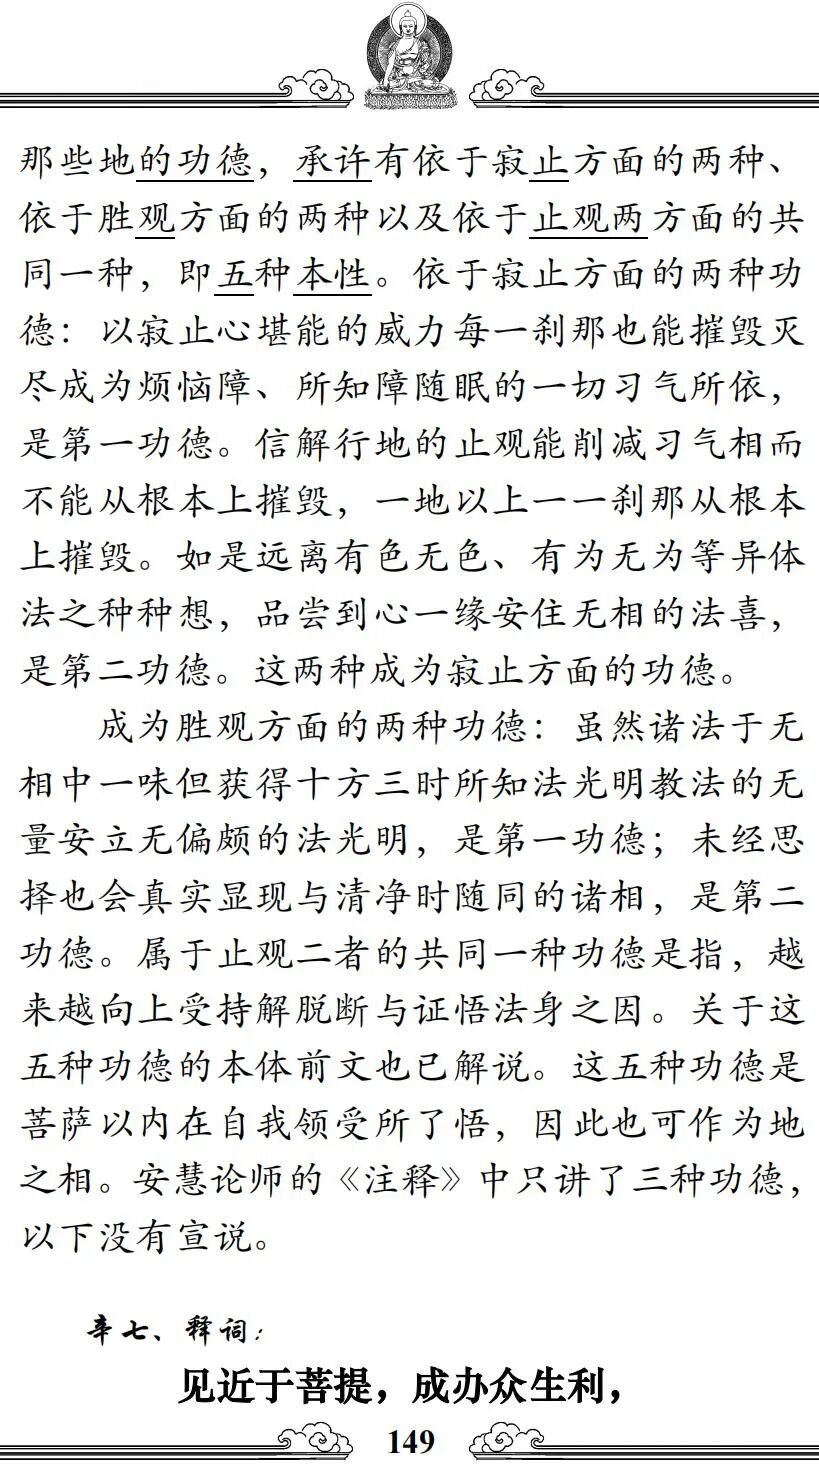 那些地的功德，承许有依于寂止方面的两种、
依于胜观方面的两种以及依于止观两方面的共
同一种，即五种本性。依于寂止方面的两种功
德：以寂止心堪能的威力每一刹那也能摧毁灭
尽成为烦恼障、所知障随眠的一切习气所依，
是第一功德。信解行地的止观能削减习气相而
不能从根本上摧毁，一地以上一一刹那从根本
上摧毁。如是远离有色无色、有为无为等异体
法之种种想，品尝到心一缘安住无相的法喜，
是第二功德。这两种成为寂止方面的功德。
成为胜观方面的两种功德：虽然诸法于无
相中一味但获得十方三时所知法光明教法的无
量安立无偏颇的法光明，是第一功德；未经思
择也会真实显现与清净时随同的诸相，是第二
功德。属于止观二者的共同一种功德是指，越
来越向上受持解脱断与证悟法身之因。关于这
五种功德的本体前文也已解说。这五种功德是
菩萨以内在自我领受所了悟，因此也可作为地
之相。安慧论师的《注释》中只讲了三种功德，
以下没有宣说。
辛七、释词：
见近于菩提，成办众生利，
149